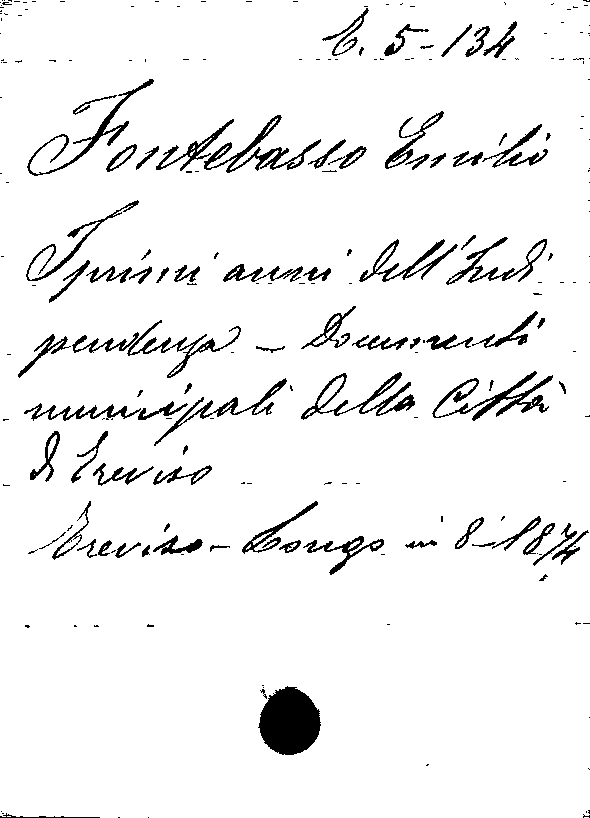 E. 5-134
Fontebasso Emilio
I primi anni dell'Indi
pendenza - Documenti
municipali della Città
di Treviso
Treviso - Longo in 8° 1874